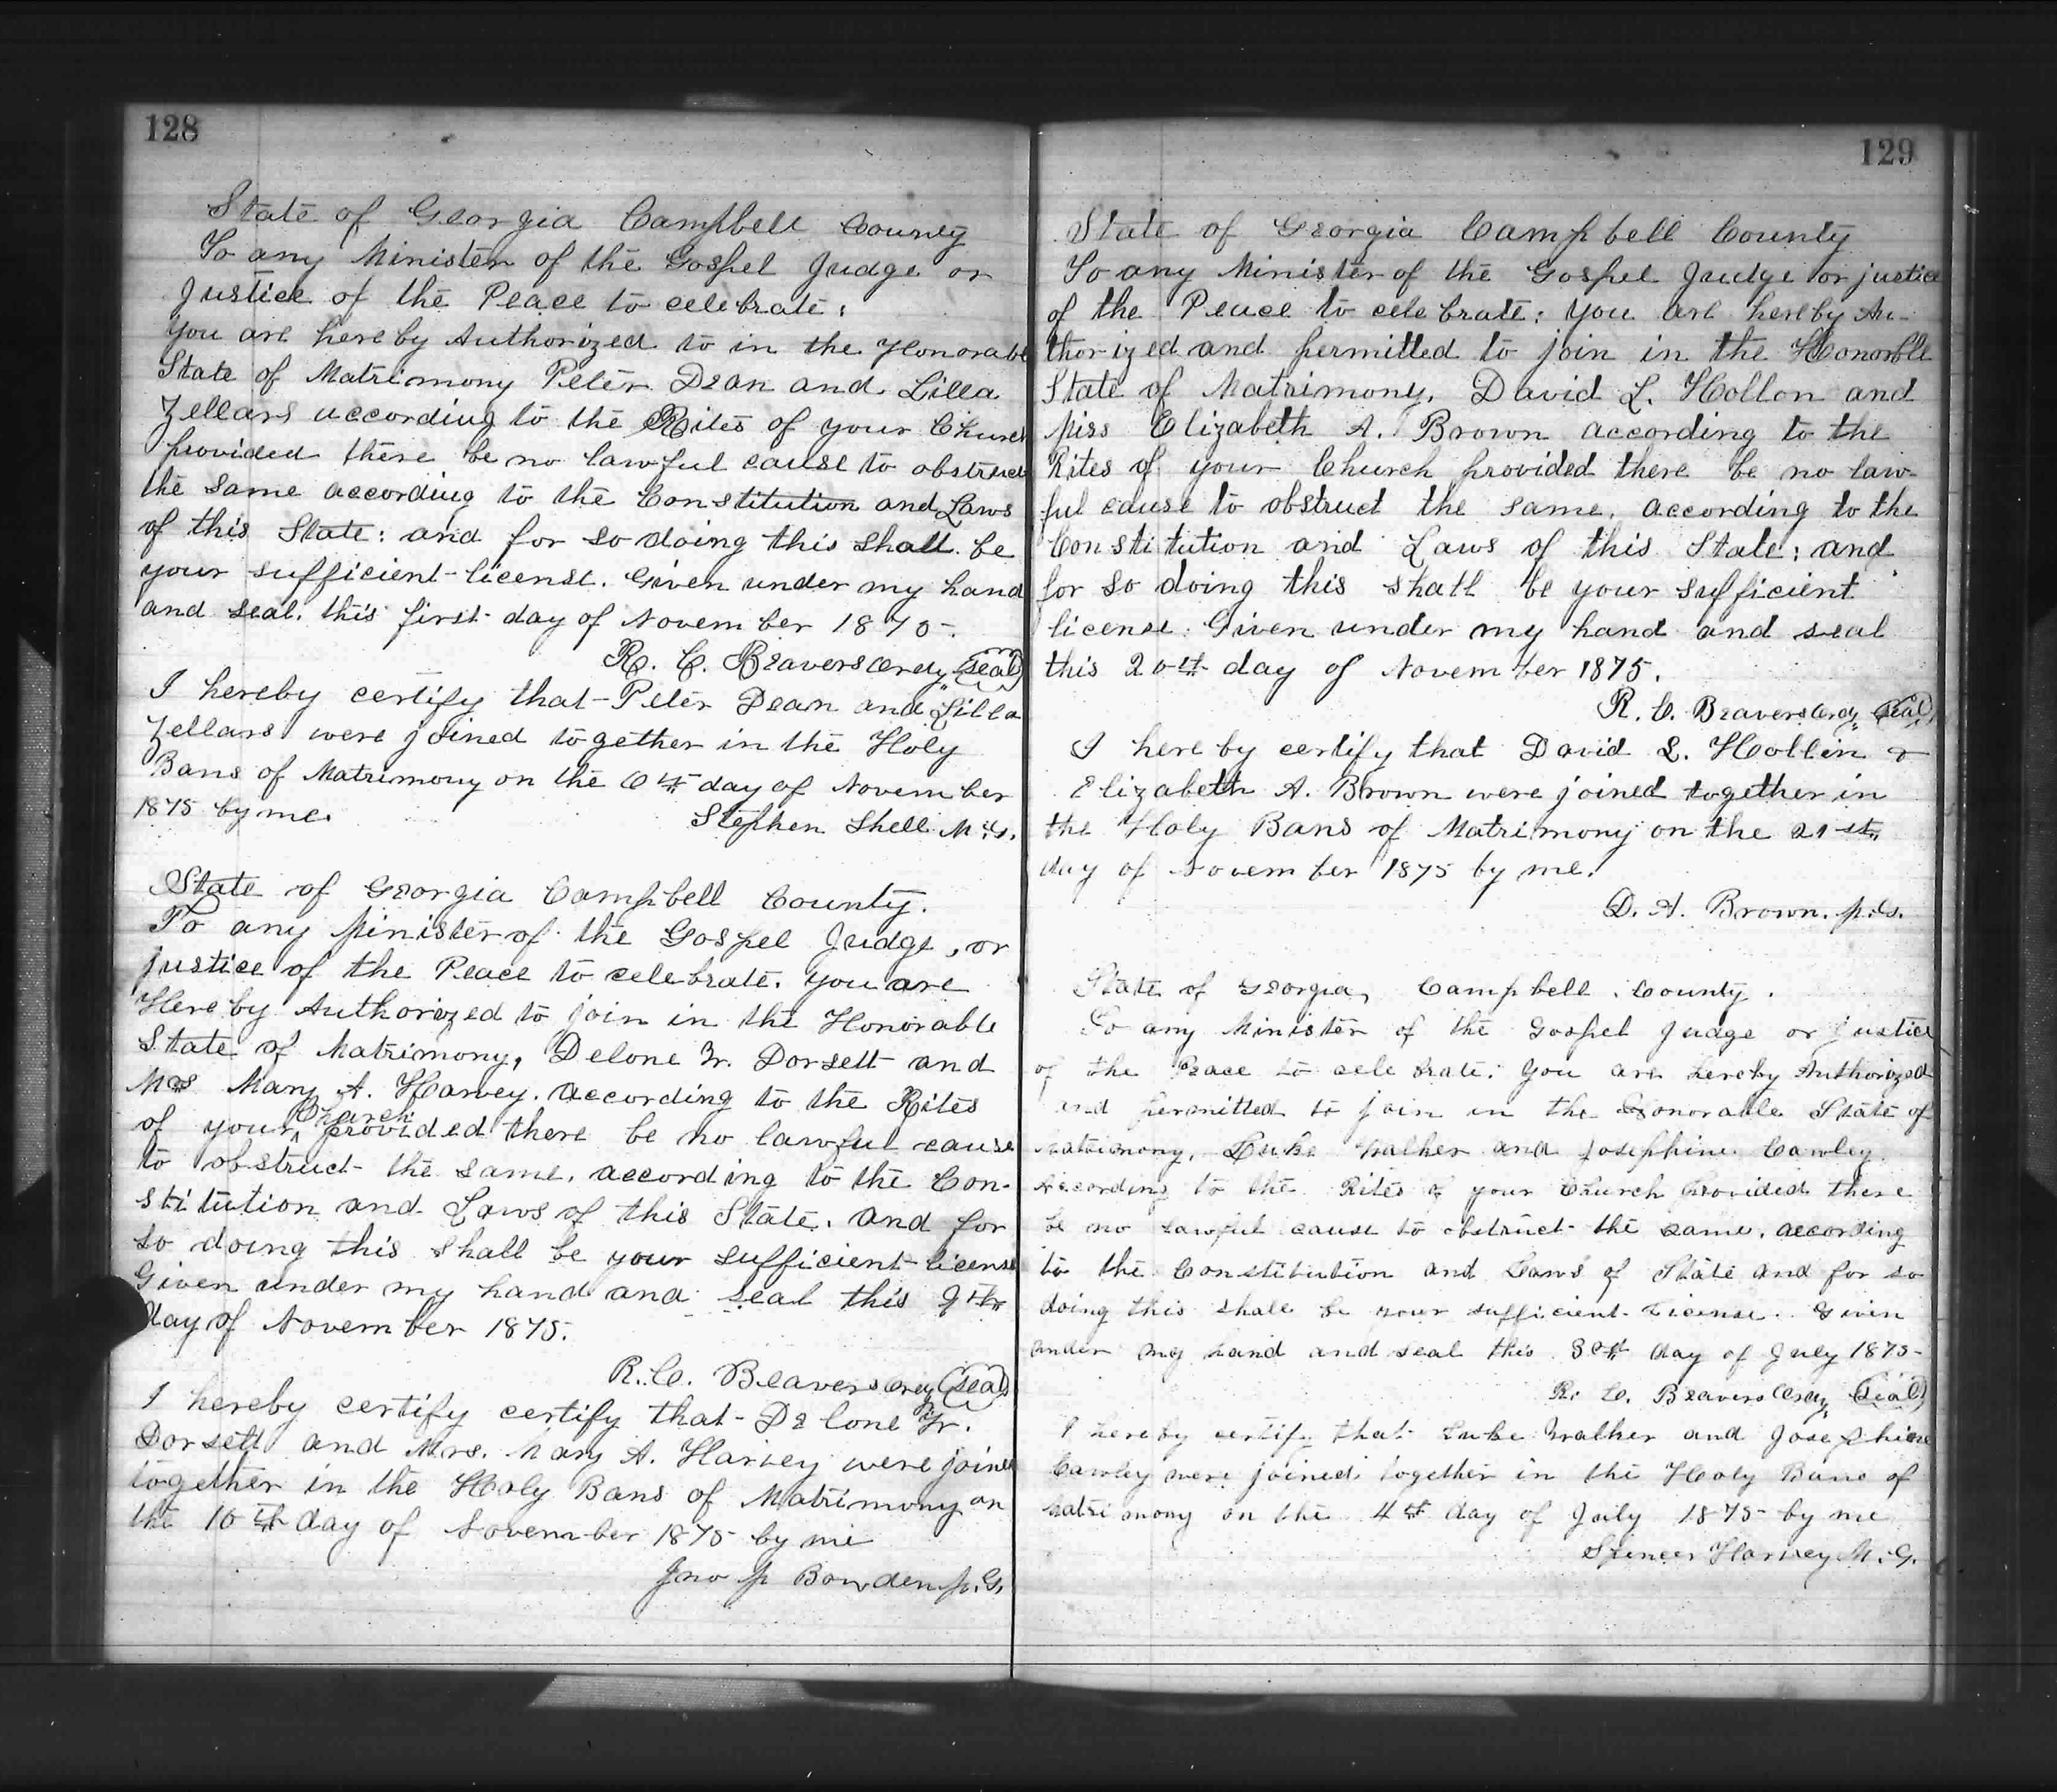 128
State of Georgia Campbell County
To any Minister of the Gospel Judge or
Justice of the Peace to celebrate:
you are hereby Authorized to in the Honorable
State of Matrimony Peter Dean and Lilla
Zellars according to the Rites of your Church
provided there be no lawful cause to obstruct
the same according to the Constitution and Laws
of this State: and for so doing this shall be
your sufficient license. Given under my hand
and seal. this first day of November 1875.
R. C. Beavers Ordy (Seal)
I hereby certify that Peter Dean and Lilla
Zellars were joined together in the Holy
Bans of Matrimony on the 6th day of November
1875 by me.
Stephen Shell M.G.
State of Georgia Campbell County.
To any Minister of the Gospel Judge, or
justice of the Peace to celebrate. you are
Hereby Authorized to join in the Honorable
State of Matrimony, Delone Jr. Dorsett and
Mrs Mary A. Harvey. according to the Rites
of your Church provided there be no lawful cause
to obstruct the same. according to the Con-
stitution and Laws of this State. and for
so doing this shall be your sufficient license
Given under my hand and seal this 9th
day of November 1875.
R. C. Beavers Ordy (Seal)
I hereby certify certify that Delone Jr.
Dorsett and Mrs. Mary A. Harvey were joined
together in the Holy Bans of Matrimony on
the 10th day of November 1875 by me
Jno M Bowden M.G.
129
State of Georgia Campbell County
To any Minister of the Gospel Judge or justice
of the Peace to celebrate: you are hereby Au-
thorized and permitted to join in the Honorble
State of Matrimony, David L. Hollon and
Miss Elizabeth A. Brown according to the
Rites of your Church provided there be no law-
ful cause to obstruct the same. according to the
Constitution and Laws of this State: and
for so doing this shall be your sufficient
license. Given under my hand and seal
this 20th day of November 1875.
R. C. Beavers Ordy (Seal)
I hereby certify that David L. Hollin &
Elizabeth A. Brown were joined together in
the Holy Bans of Matrimony on the 21st
day of November 1875 by me.
D. A. Brown. M.G.
State of Georgia, Campbell County.
To any Minister of the Gospel Judge or justice
of the Peace to celebrate: you are hereby Authorized
and permitted to join in the Honorable State of
Matrimony, Luke Walker and Josephine Cawley
According to the Rites of your Church provided there
be no lawful cause to obstruct the same. according
to the Constitution and Laws of State and for so
doing this shall be your sufficient License. Given
under my hand and seal this 3rd day of July 1875
R. C. Beavers Ordy (Seal)
I hereby certify that Luke Walker and Josephine
Cawley were joined together in the Holy Bans of
Matrimony on the 4th day of July 1875 by me
Spencer Harvey M.G.